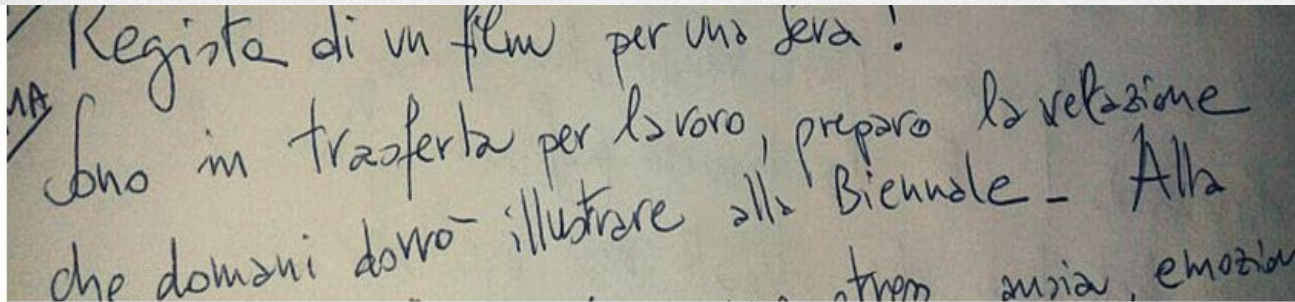 Regista di un film per una sera!
MA
Sono in trasferta per lavoro, preparo la relazione
che domani dovrò illustrare alla Biennale - Alla
ansia, emozion